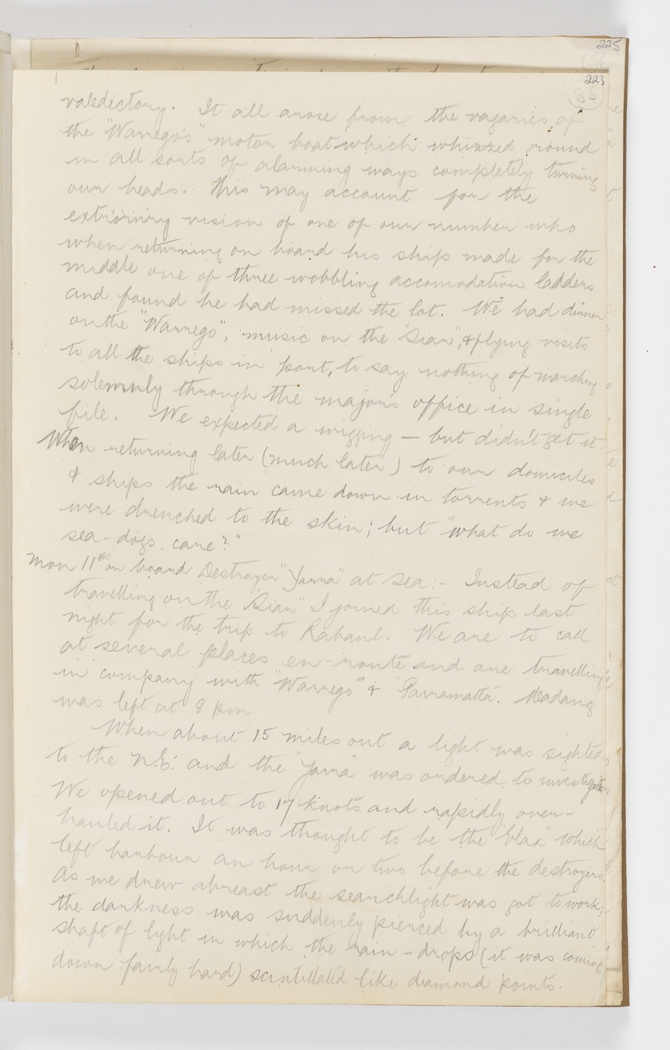 225
223
86
valedictory. It all arose from the vagaries of
the "Warrego's" motor boat which whizzed round
in all sorts of alarming ways completely turning
our heads. This may account for the
vision of one of our number who
when returning on board his ship made for the
middle one of three wobbling accomodation ladders
and found he had missed the lot. We had dinner
on the "Warrego", music on the "Siar", & flying visits
to all the ships in port, to say nothing of marching
solemnly through the major's office in single
file. We expected a wigging — but didn't get it
When returning later (much later) to our domiciles
& ships the rain came down in torrents & we
were drenched to the skin; but "what do we
sea-dogs care?"
Mon 11th on board Destroyer "Yarra" at sea:- Instead of
travelling on the "Siar" I joined this ship last
night for the trip to Rabaul. We are to call
at several places en-route and are travelling
in company with "Warrego" & "Parramatta". Madang
was left at 8 pm.
When about 15 miles out a light was sighted
to the N.E. and the "Yarra" was ordered to investigate
We opened out to 17 knots and rapidly over-
hauled it. It was thought to be the "Siar" which
left harbour an hour or two before the destroyers
As we drew abreast the searchlight was got to work;
the darkness was suddenly pierced by a brilliant
shaft of light in which the rain-drops (it was coming
down fairly hard) scintillated like diamond points.